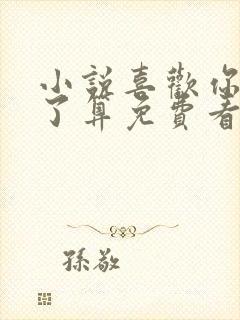 小說喜歡你
了算免費看
孫敬